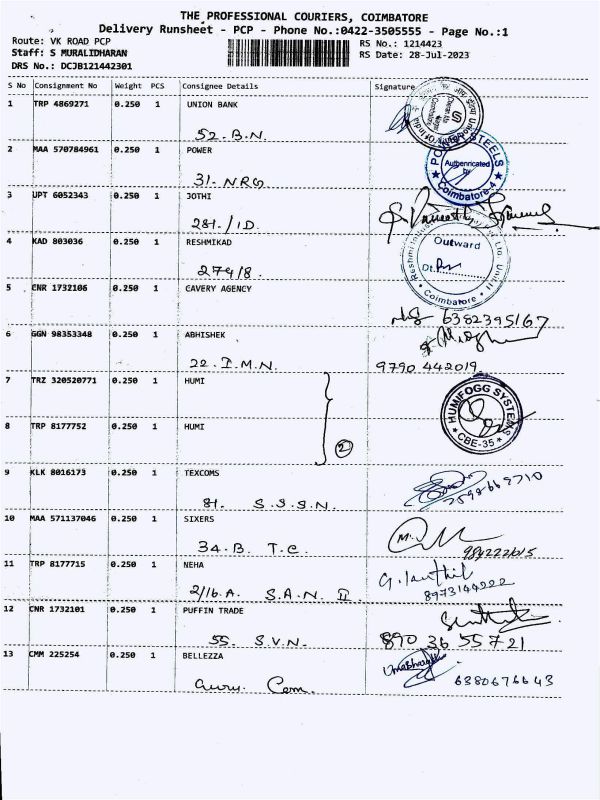 THE PROFESSIONAL COURIERS, COIMBATORE
Delivery Runsheet - PCP - Phone No.:0422-3505555 - Page No.:1
Route: VK ROAD PCP
RS No.: 1214423
Staff: S MURALIDHARAN
RS Date: 28-Jul-2023
DRS No.: DCJB121442301
S No Consignment No Weight PCS Consignee Details Signature
1 TRP 4869271 0.250 1 UNION BANK
52. B.N.
2 MAA 570784961 0.250 1 POWER
POWER STEELS
Authenricated by
Coimbatore-4
31. NRG
3 UPT 6052343 0.250 1 JOTHI
281./1D.
4 KAD 803036 0.250 1 RESHMIKAD
Outward
Dt.
Coimbatore
274/8.
5 CNR 1732106 0.250 1 CAVERY AGENCY
6382395167
6 GGN 98353348 0.250 1 ABHISHEK
22. I.M.N.
9790 442019
7 TRZ 320520771 0.250 1 HUMI
HUMIFOGG SYSTEMS
CBE-35
8 TRP 8177752 0.250 1 HUMI
2
9 KLK 8016173 0.250 1 TEXCOMS
81. S.S.S.N.
10 MAA 571137046 0.250 1 SIXERS
34.B. T.C.
11 TRP 8177715 0.250 1 NEHA
2/16.A. S.A.N II
8973144222
12 CNR 1732101 0.250 1 PUFFIN TRADE
55. S.V.N.
890 36 55721
13 CMM 225254 0.250 1 BELLEZZA
6380676643